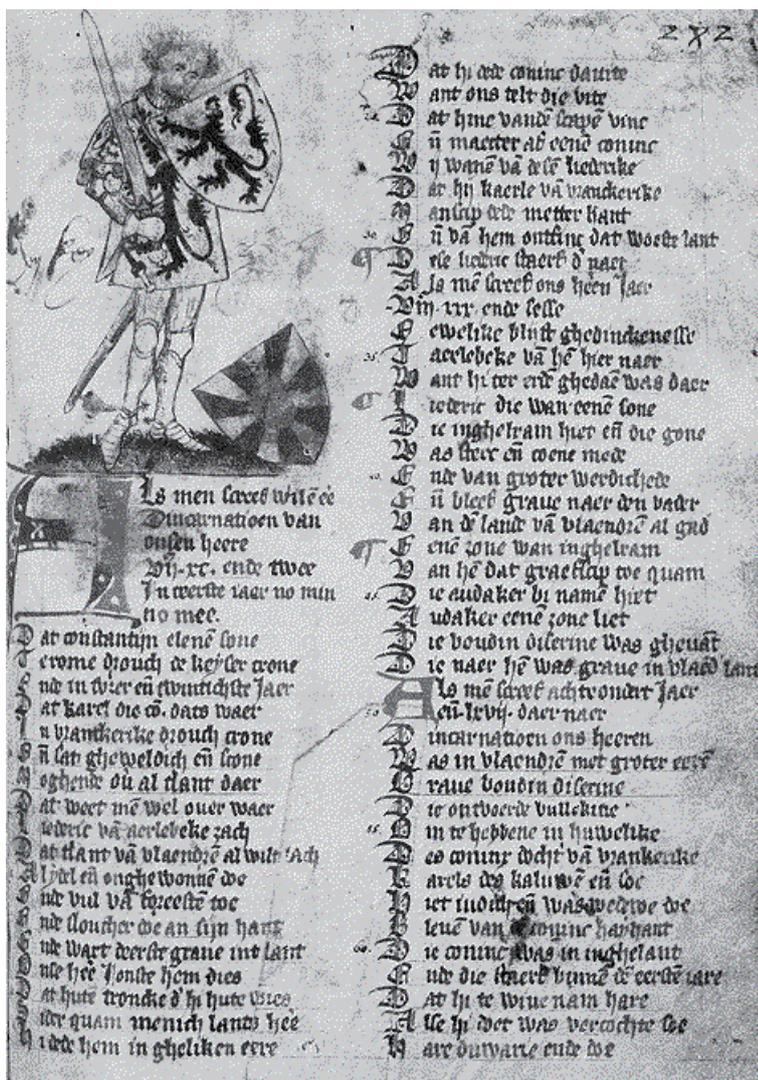 Als men screef wilē eē
Dincarnatioen van
onsen heere
vij.xc. ende twee
In teerste iaer no min
no mee.
Dat constantijn elenē sone
Terome drouch de keyser crone
Ende in svier eñ twintichste Jaer
Dat karel die cō. dats waer
In vrankerike drouch crone
Eñ sat gheweldich eñ scone
Moghende ou al tlant daer
Dat weet mē wel ouer waer
liederic vā aerlebeke zach
Dat tlant vā vlaendrē al wilt lach
Lydel eñ onghewonnē doe
Ende vul vā foreestē toe
Ende sloucher doe an sijn hant
Ende wart deerste graue int lant
onse heē Jonste hem dies
Dat hute troncke d' hi hute
quam menich lants heē
dede hem in gheliken eere
282
Dat hi dede coninc dauite
Want ons telt die vite
Dat hine vandē scapē vinc
Eñ maecter af eenē coninc
Wy wanē vā desē liederike
Dat hy kaerle vā vranckerike
Manscip dede metter hant
Eñ vā hem ontfinc dat woeste lant
Dese liederic staerf d'naer
Als mē screef ons heeñ Jaer
viij.xxx. ende sesse
Eewelike blijft ghedinckenesse
Taerlebeke vā hē hier naer
Want hi ter erdē ghedaē was daer
liederic die wan eenē sone
Die inghelram hiet eñ die gone
Was sterc eñ coene mede
Ende van groter werdichede
Eñ bleef graue naer den vader
Van dē lande vā vlaendrē al gad
Eenē zone wan inghelram
Van hē dat graefscip toe quam
Die audaker bi namē hiet
Audaker eenē zone liet
Die boudin diserine was ghenāt
Die naer hē was graue in vlaēd lant
Als mē screef achtondert Jaer
eñ.lxvij. daer naer
Dincarnatioen ons heeren
Was in vlaendrē met groter eerē
Graue boudin diserine
Die ontvoerde
Om te hebbene in huwelike
Des coninx docht' vā vrankerike
Karels des kaluwē eñ soe
Hiet iudich eñ was wedewe doe
leuē van coninc
Die coninc was in inghelant
Ende die staerf binnē dē eerstē iare
Dat hi te wiue nam hare
Alse hi doet was vercochte soe
Hare duwarie ende doe